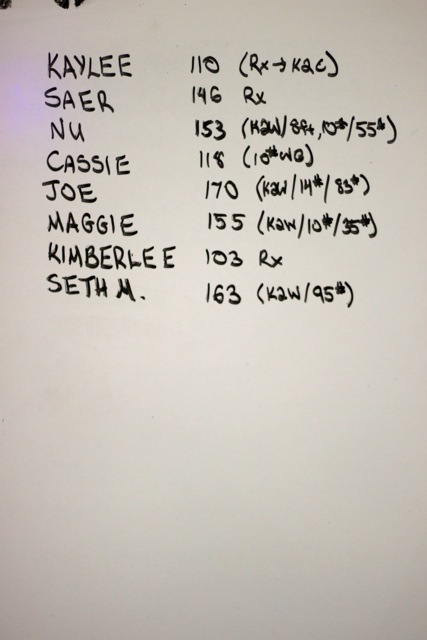 KAYLEE 110 (Rx→K2C)
SAER 146 Rx
NU 153 (K2W/8ft,10#/55#)
CASSIE 118 (10#WB)
JOE 170 (K2W/14#/83#)
MAGGIE 155 (K2W/10#/35#)
KIMBERLEE 103 Rx
SETH M. 163 (K2W/95#)